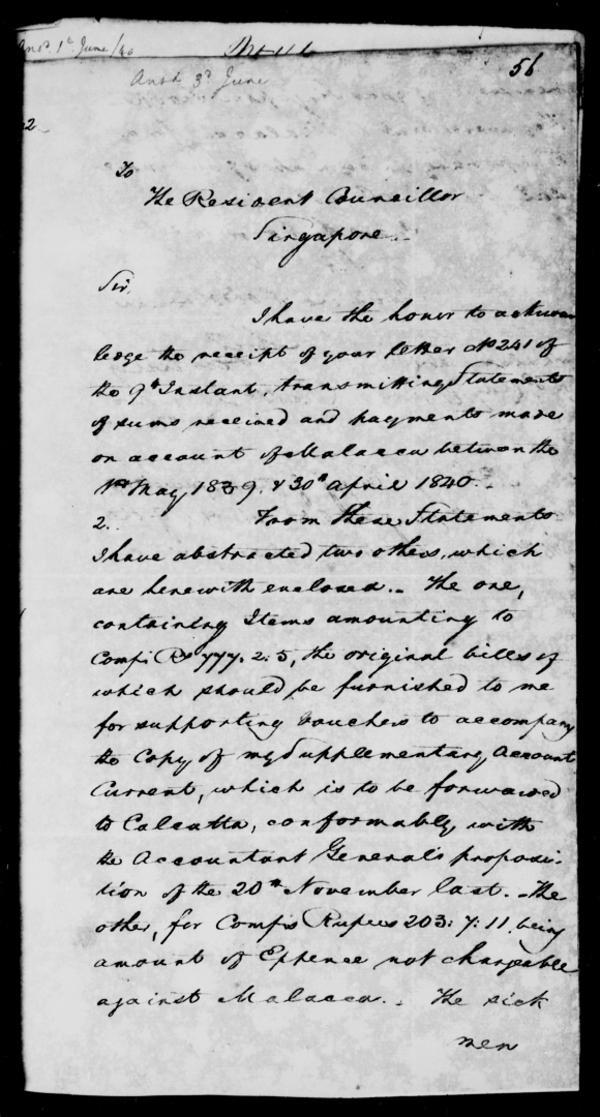 Ansd. 1st June/40
56
Ansd 3d June
2
To
The Resident Councillor
Singapore.
Sir,
I have the honor to acknow
ledge the receipt of your letter No 241 of
the 9th Instant, transmitting Statements
of sums received and payments made
on account of Malacca between the
1st May 1839. & 30th April 1840.
2. From these Statements
I have abstracted two others, which
are herewith enclosed. The one,
containing Items amounting to
Comps Rs 777. 2: 5, the original bills of
which should be furnished to me
for supporting Vouchers to accompany
the Copy of my Supplementary Account
Current, which is to be forwarded
to Calcutta, conformably with
the Accountant General's proposi-
tion of the 20th November last. The
other, for Comps Rupees 203: 7: 11, being
amount of Expence not chargeable
against Malacca. The sick
men